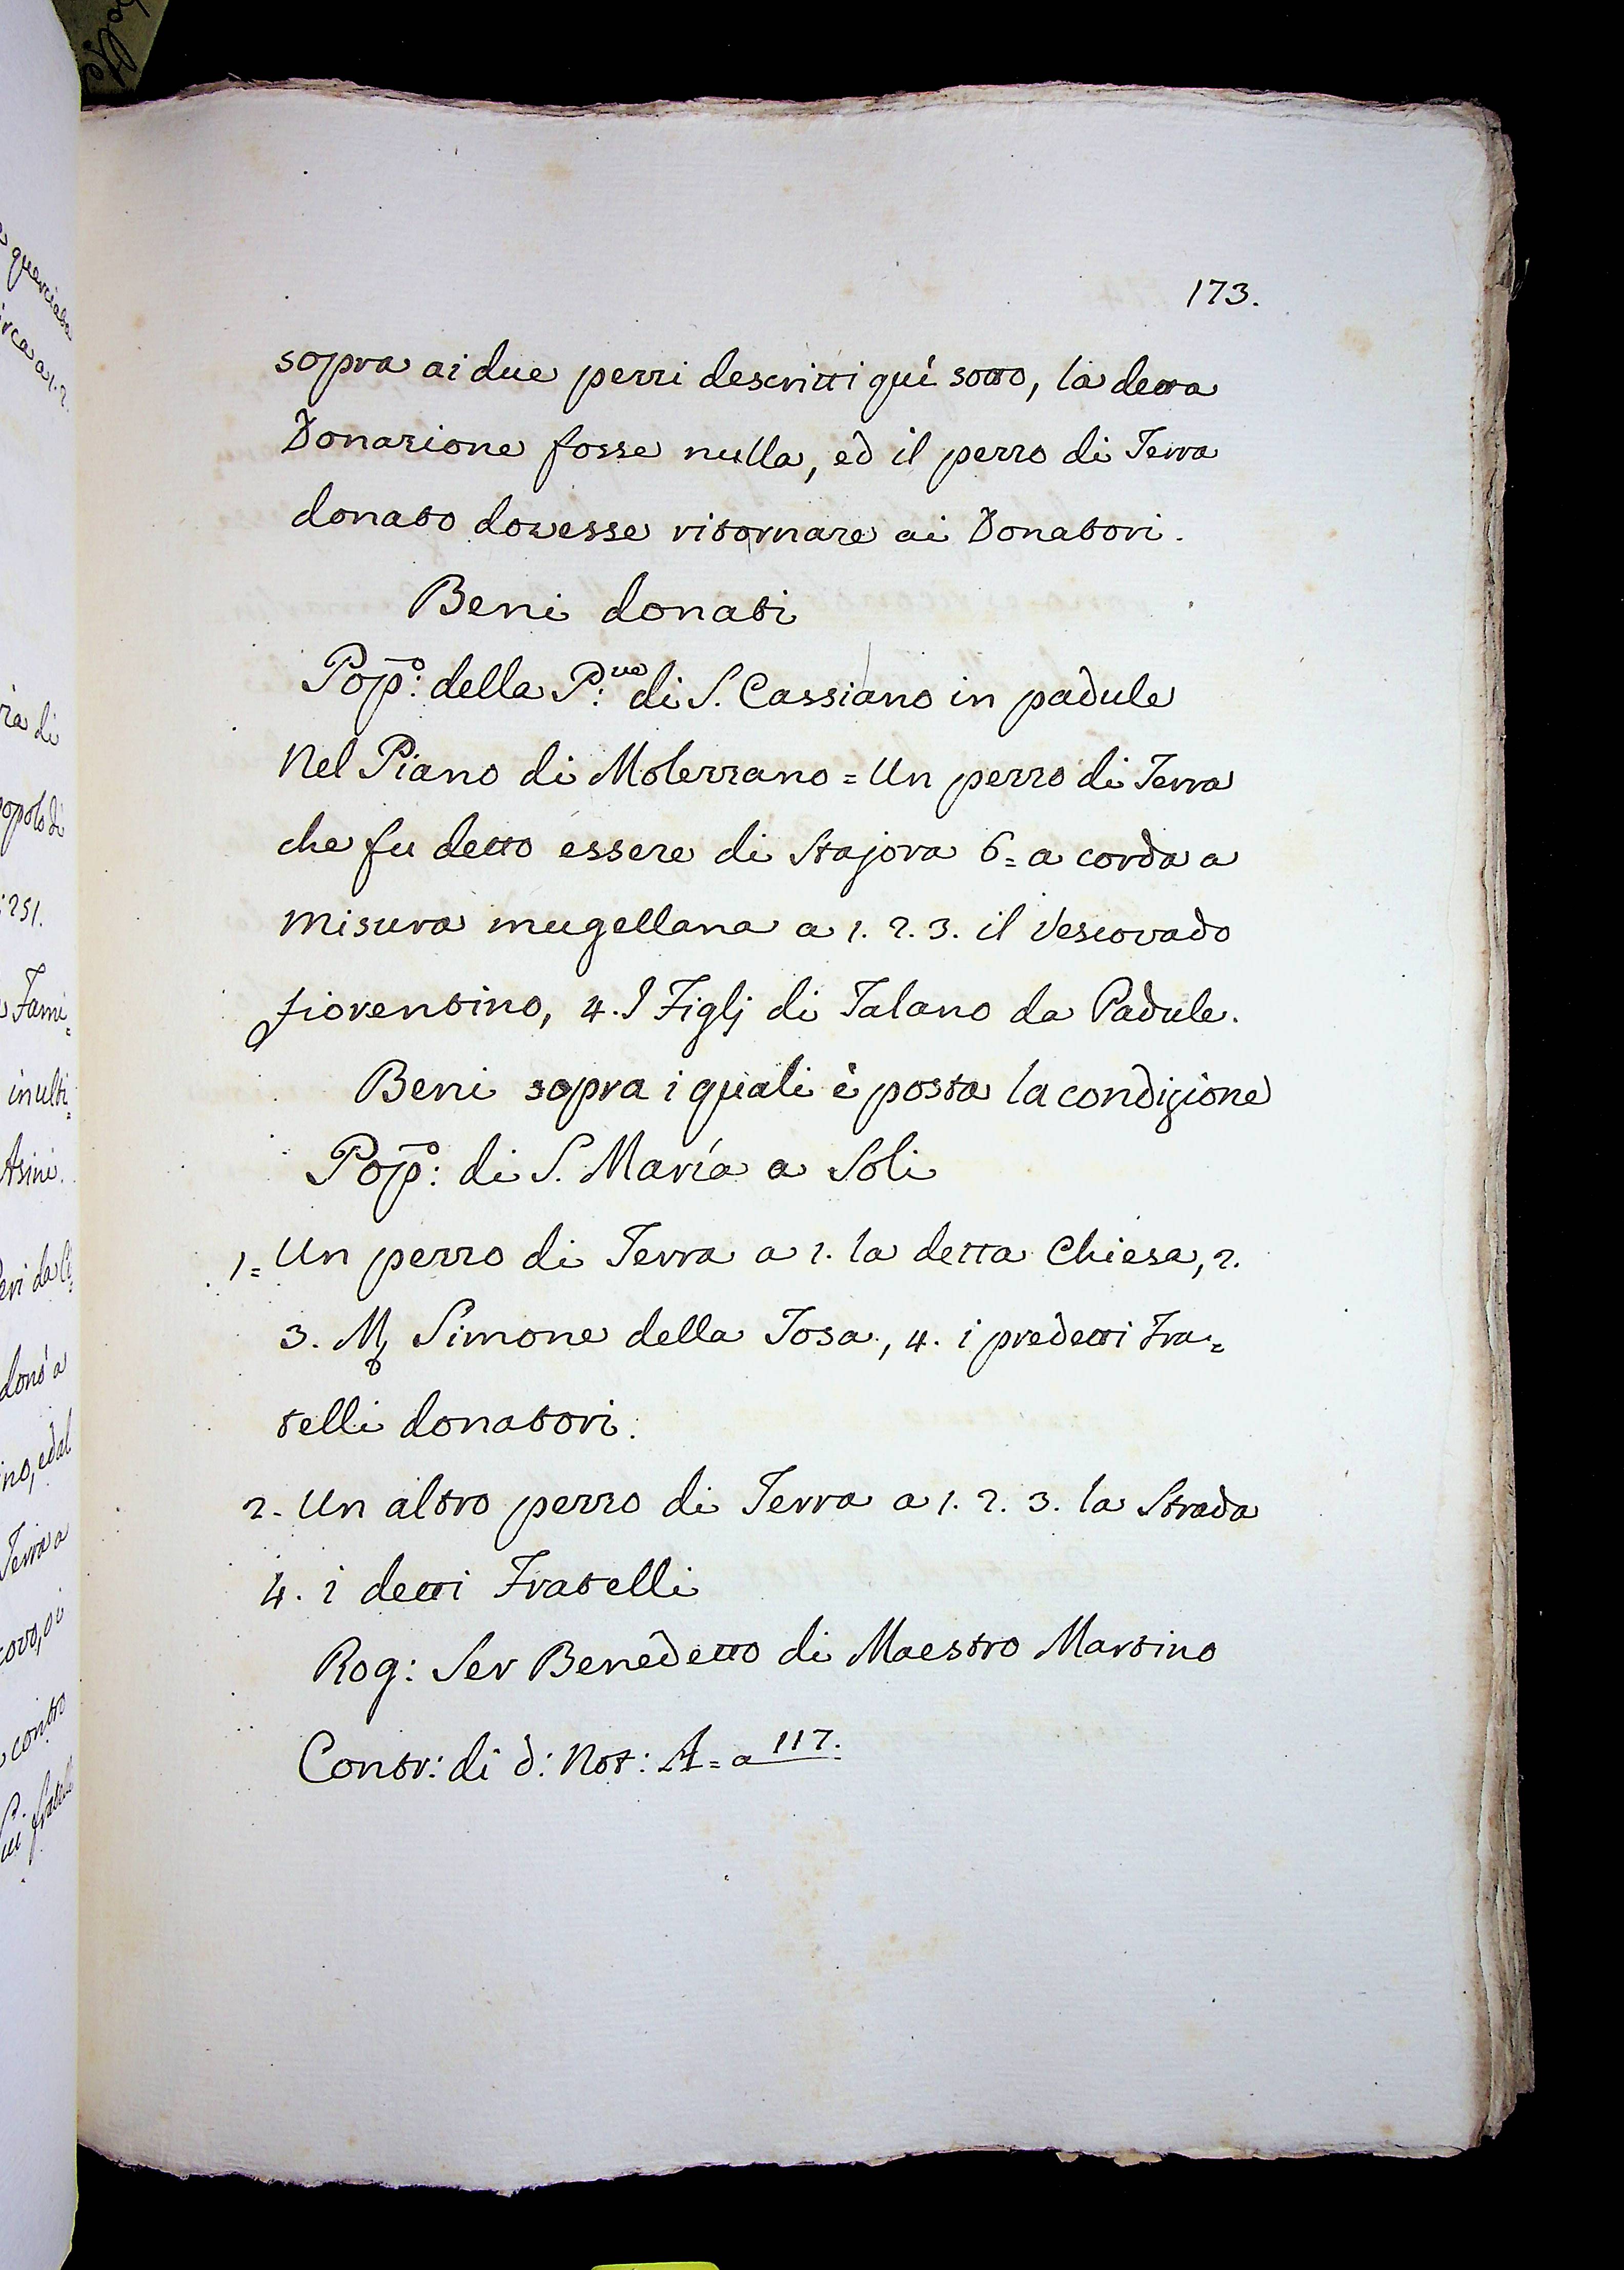 173.
sopra ai due pezzi descritti quì sotto, la detta
Donazione fosse nulla, ed il pezzo di Terra
donato dovesse ritornare ai Donatori.
Beni donati
Popo: della P:ve di S. Cassiano in padule
Nel Piano di Molezzano = Un pezzo di Terra
che fu detto essere di Stajora 6= a corda a
misura mugellana a 1. 2. 3. il Vescovado
fiorentino, 4. I Figlj di Talano da Padule.
Beni sopra i quali è posta la condizione
Popo: di S. Maria a Soli
1= Un pezzo di Terra a 1. la detta Chiesa, 2.
3. M. Simone della Tosa, 4. i predetti Fra=
telli donatori.
2. Un altro pezzo di Terra a 1. 2. 3. la Strada
4. i detti Fratelli
Rog: Ser Benedetto di Maestro Martino
Contr: di d: Not: A= a 117.